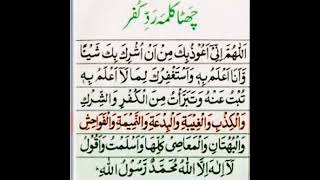 چھٹا کلمہ ردِّ کفر
اَللّٰهُمَّ اِنِّیْۤ اَعُوْذُ بِكَ مِنْ اَنْ اُشْرِكَ بِكَ شَیْئًا
وَّاَنَا اَعْلَمُ بِهٖ وَاَسْتَغْفِرُكَ لِمَا لَاۤ اَعْلَمُ بِهٖ
تُبْتُ عَنْهُ وَتَبَرَّأْتُ مِنَ الْكُفْرِ وَالشِّرْكِ
وَالْكِذْبِ وَالْغِیْبَةِ وَالْبِدْعَةِ وَالنَّمِیْمَةِ وَالْفَوَاحِشِ
وَالْبُهْتَانِ وَالْمَعَاصِیْ كُلِّهَا وَاَسْلَمْتُ وَاَقُوْلُ
لَاۤ اِلٰهَ اِلَّا اللّٰهُ مُحَمَّدٌ رَّسُوْلُ اللّٰهِ